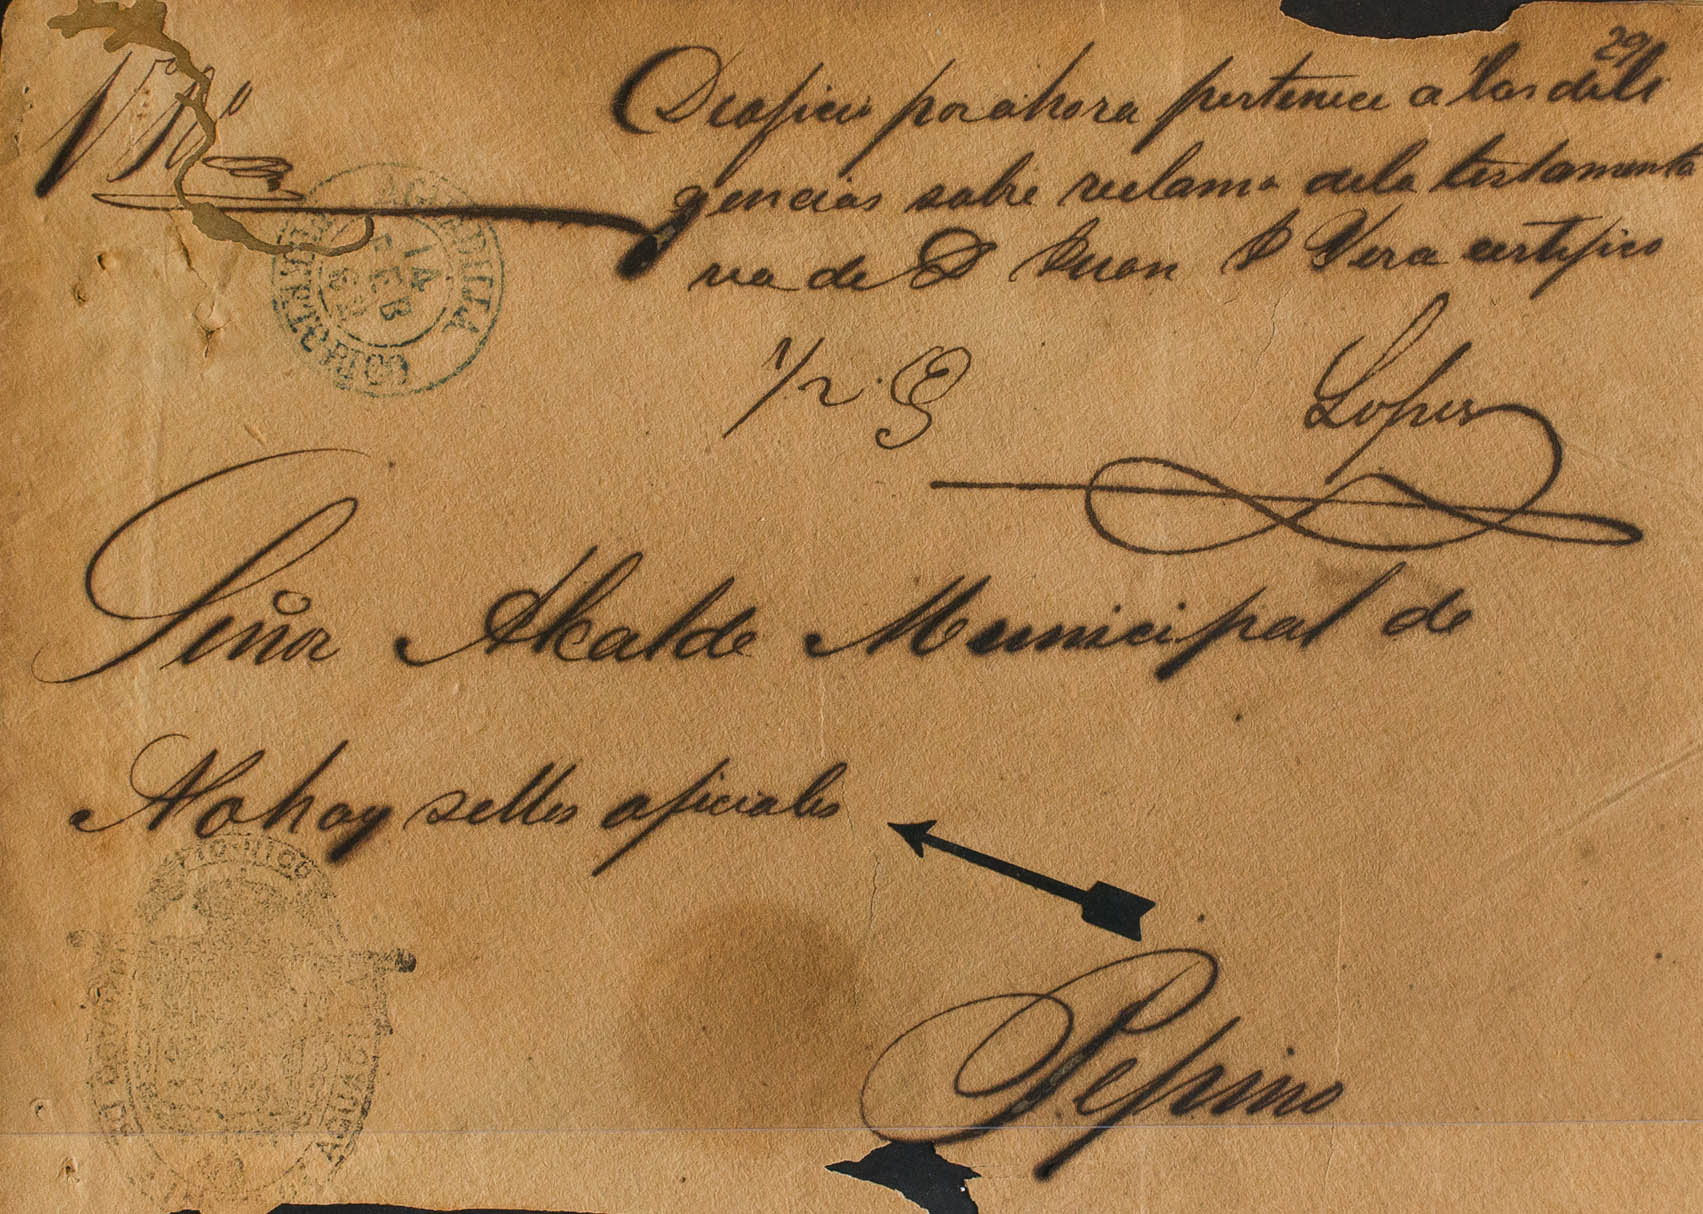 29
Vº Bº
De oficio por ahora pertenece a las dili
gencias sobre reclamo de la testamenta
ria de D Juan P Vera certifico
1/2 G
Lopes
AGUADILLA
14
FEB
PUERTO RICO
Señor Alcalde Municipal de
No hay sellos oficiales
PUERTO-RICO
JUZGADO DE
AGUADILLA
Pepino